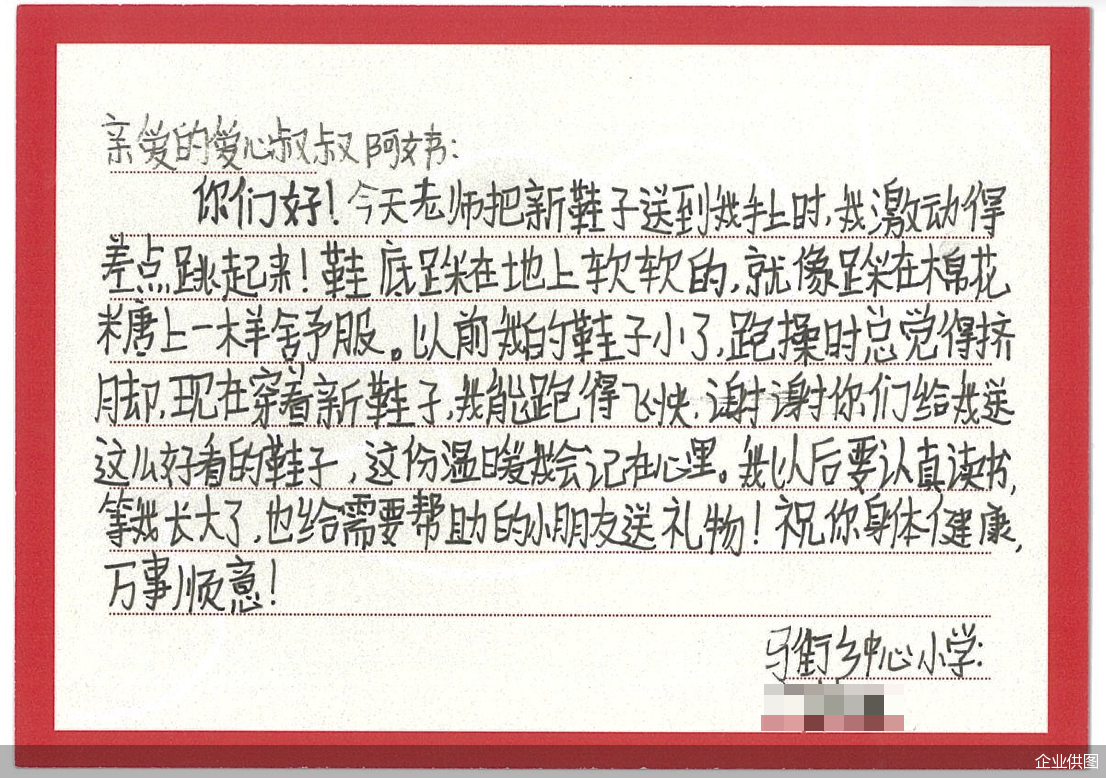 亲爱的爱心叔叔阿姨:
你们好!今天老师把新鞋子送到我手上时,我激动得
差点跳起来!鞋底踩在地上软软的,就像踩在棉花
糖上一样舒服。以前我的鞋子小了,跑操时总觉得挤
脚,现在穿着新鞋子,我能跑得飞快,谢谢你们给我送
这么好看的鞋子,这份温暖我会记在心里。我以后要认真读书,
等我长大了,也给需要帮助的小朋友送礼物!祝你身体健康,
万事顺意!
马街乡中心小学:
企业供图